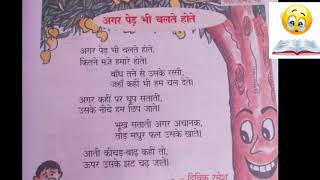 अगर पेड़ भी चलते होते
अगर पेड़ भी चलते होते,
कितने मज़े हमारे होते।
बाँध तने से उसके रस्सी,
जहाँ कहीं भी हम चल देते।
अगर कहीं पर धूप सताती,
उसके नीचे हम छिप जाते।
भूख सताती अगर अचानक,
तोड़ मधुर फल उसके खाते।
आती कीचड़-बाढ़ कहीं तो,
ऊपर उसके झट चढ़ जाते।
दिविक रमेश